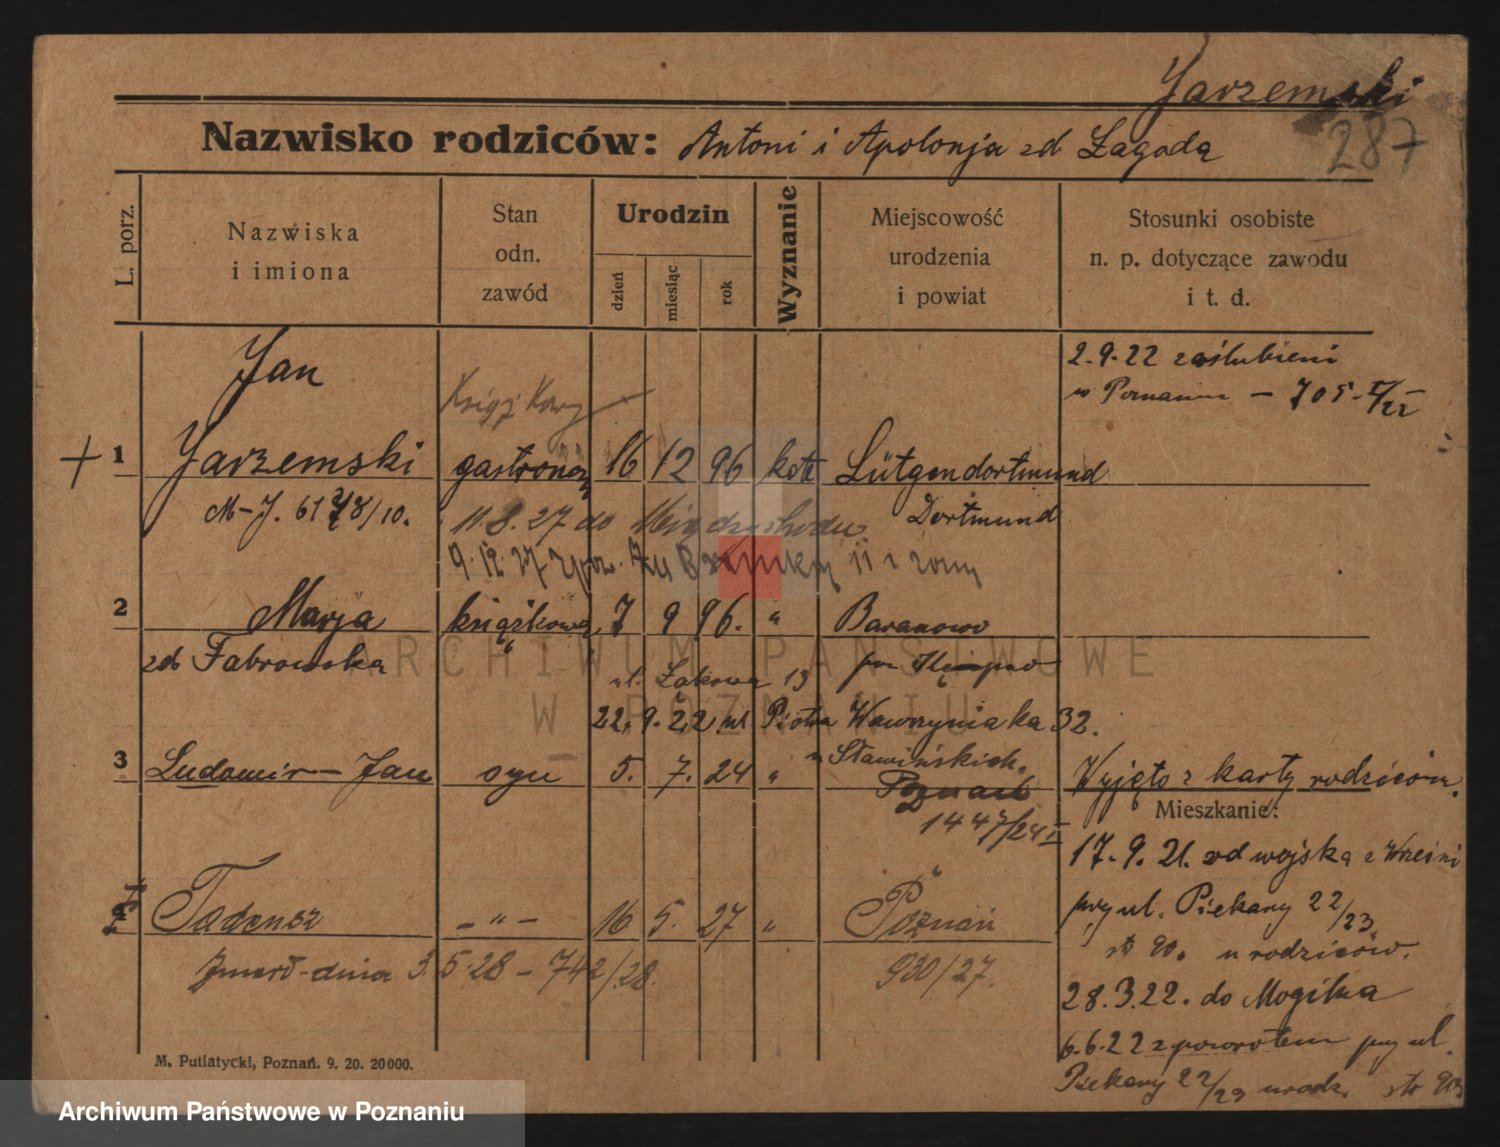 Jarzemski
287
Nazwisko rodziców: Antoni i Apolonja zd Łagoda
L. porz.
Nazwiska
i imiona
Stan
odn.
zawód
Urodzin
dzień
miesiąc
rok
Wyznanie
Miejscowość
urodzenia
i powiat
Stosunki osobiste
n. p. dotyczące zawodu
i t. d.
2.9.22 zaślubieni
w Poznaniu - 705. I/22
Jan
1 Jarzemski gastronom 16 12 96 kat Lütgendortmund
M-J. 6178/10. 11.8.27 do Międzychodu Dortmund
9.12.27 z żony
2 Marja książkowa 7 9 96. " Baranowo
zd Fabrowska ul. Łąkowa 13 pow Kępno
22.9.22 ul Piotra Wawrzyniaka 32.
u Sławińskich.
3 Ludomir-Jan syn 5. 7. 24 " Poznań Wyjęto z karty rodziców.
1447/24 I
Mieszkanie:
17.9.21. od wojska z Wrześni
przy ul. Piekary 22/23
str 90. u rodziców.
4 Tadeusz - " - 16 5. 27 " Poznań
Zmarł-dnia 3.5.28 - 742/28. 930/27.
28.3.22. do Mogilna
6.6.22 z powrotem przy ul.
Piekary 22/23 u rodz. str 90
M. Putiatycki, Poznań. 9. 20. 20000.
ARCHIWUM PAŃSTWOWE
W POZNANIU
Archiwum Państwowe w Poznaniu